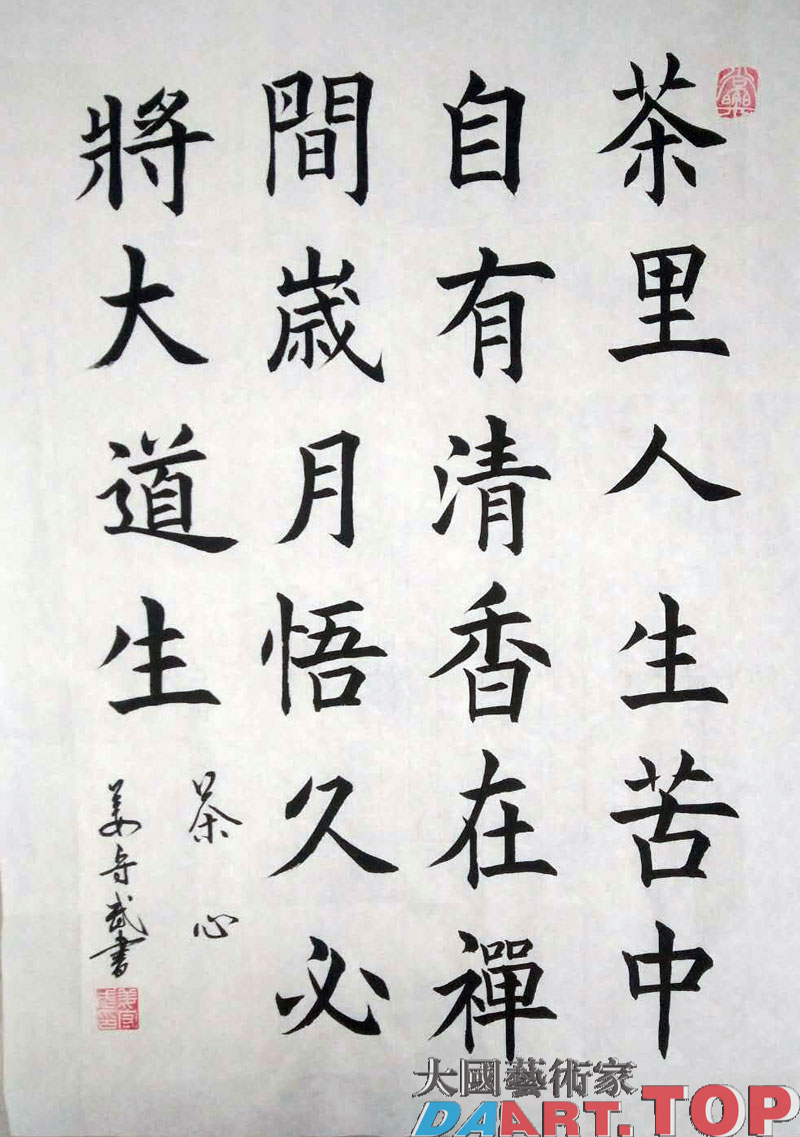 茶里人生苦中
自有清香在禪
間歲月悟久必
將大道生
茶心
姜守武書
大國藝術家
DAART.TOP